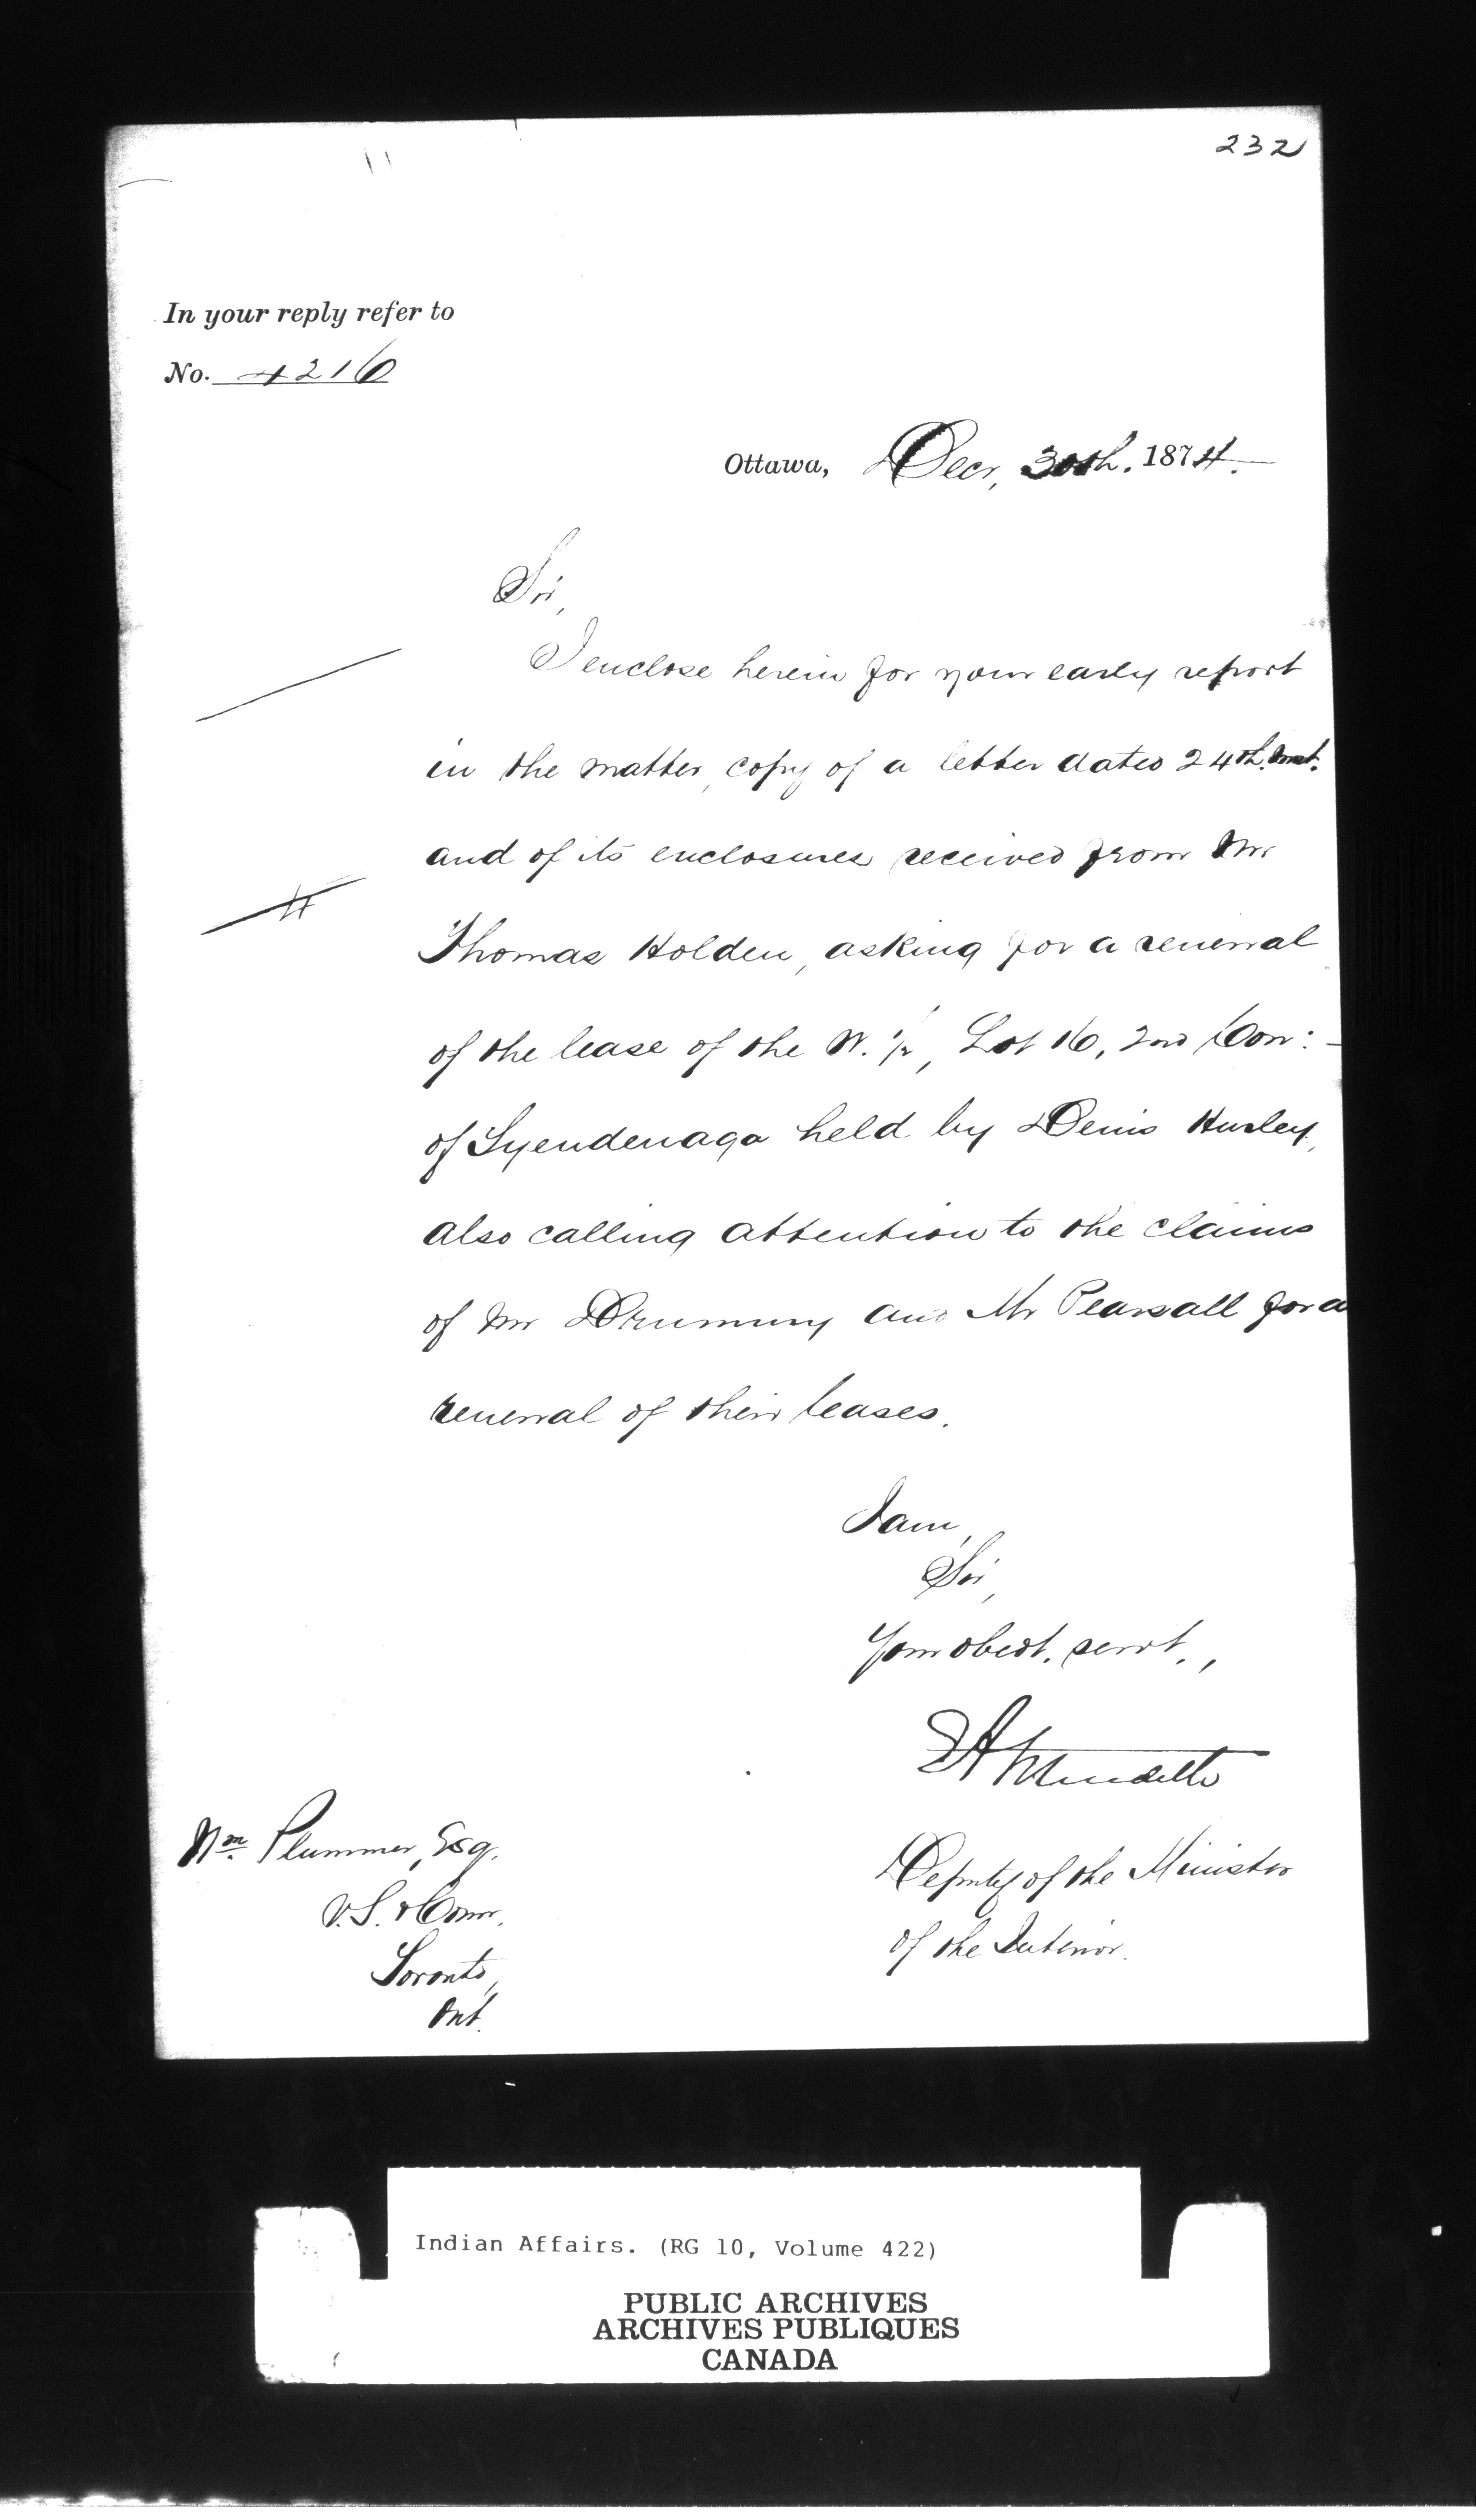 232
In your reply refer to
No. 4216
Ottawa, Decr, 30th. 1874.
Sir,
I enclose herein for your early report
in the matter, copy of a letter dated 24th. Inst.
and of its enclosures received from Mr
Thomas Holden, asking for a renewal
of the lease of the W. 1/2, Lot 16, 2nd Con:-
of Tyendenaga held by Denis Hurley,
also calling attention to the claims
of Mr Drummy and Mr Pearsall for a
renewal of their leases.
I am,
Sir,
Your obedt. servt.,
Deputy of the Minister
of the Interior.
Wm. Plummer, Esq.
V.S. & Comr.
Toronto,
Ont.
Indian Affairs. (RG 10, Volume 422)
PUBLIC ARCHIVES
ARCHIVES PUBLIQUES
CANADA